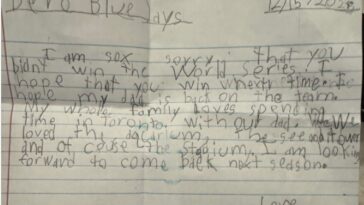 Dere Blue Jays
I am sox sorry that you
didnt win the World series I
hope that you win whext time. I
hople my dad is back on the team.
My whole family loves spending
time in Toronto with out dad. We
loved the aqarium, the see and tower
and of couse the stadium. I am looking
forward to come back next season.
Love